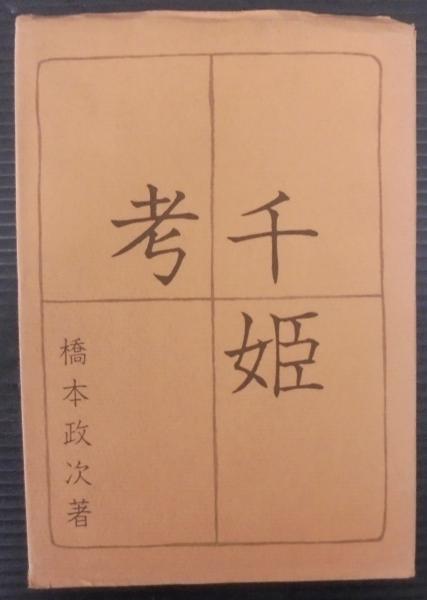 千姫
考
橋本政次著